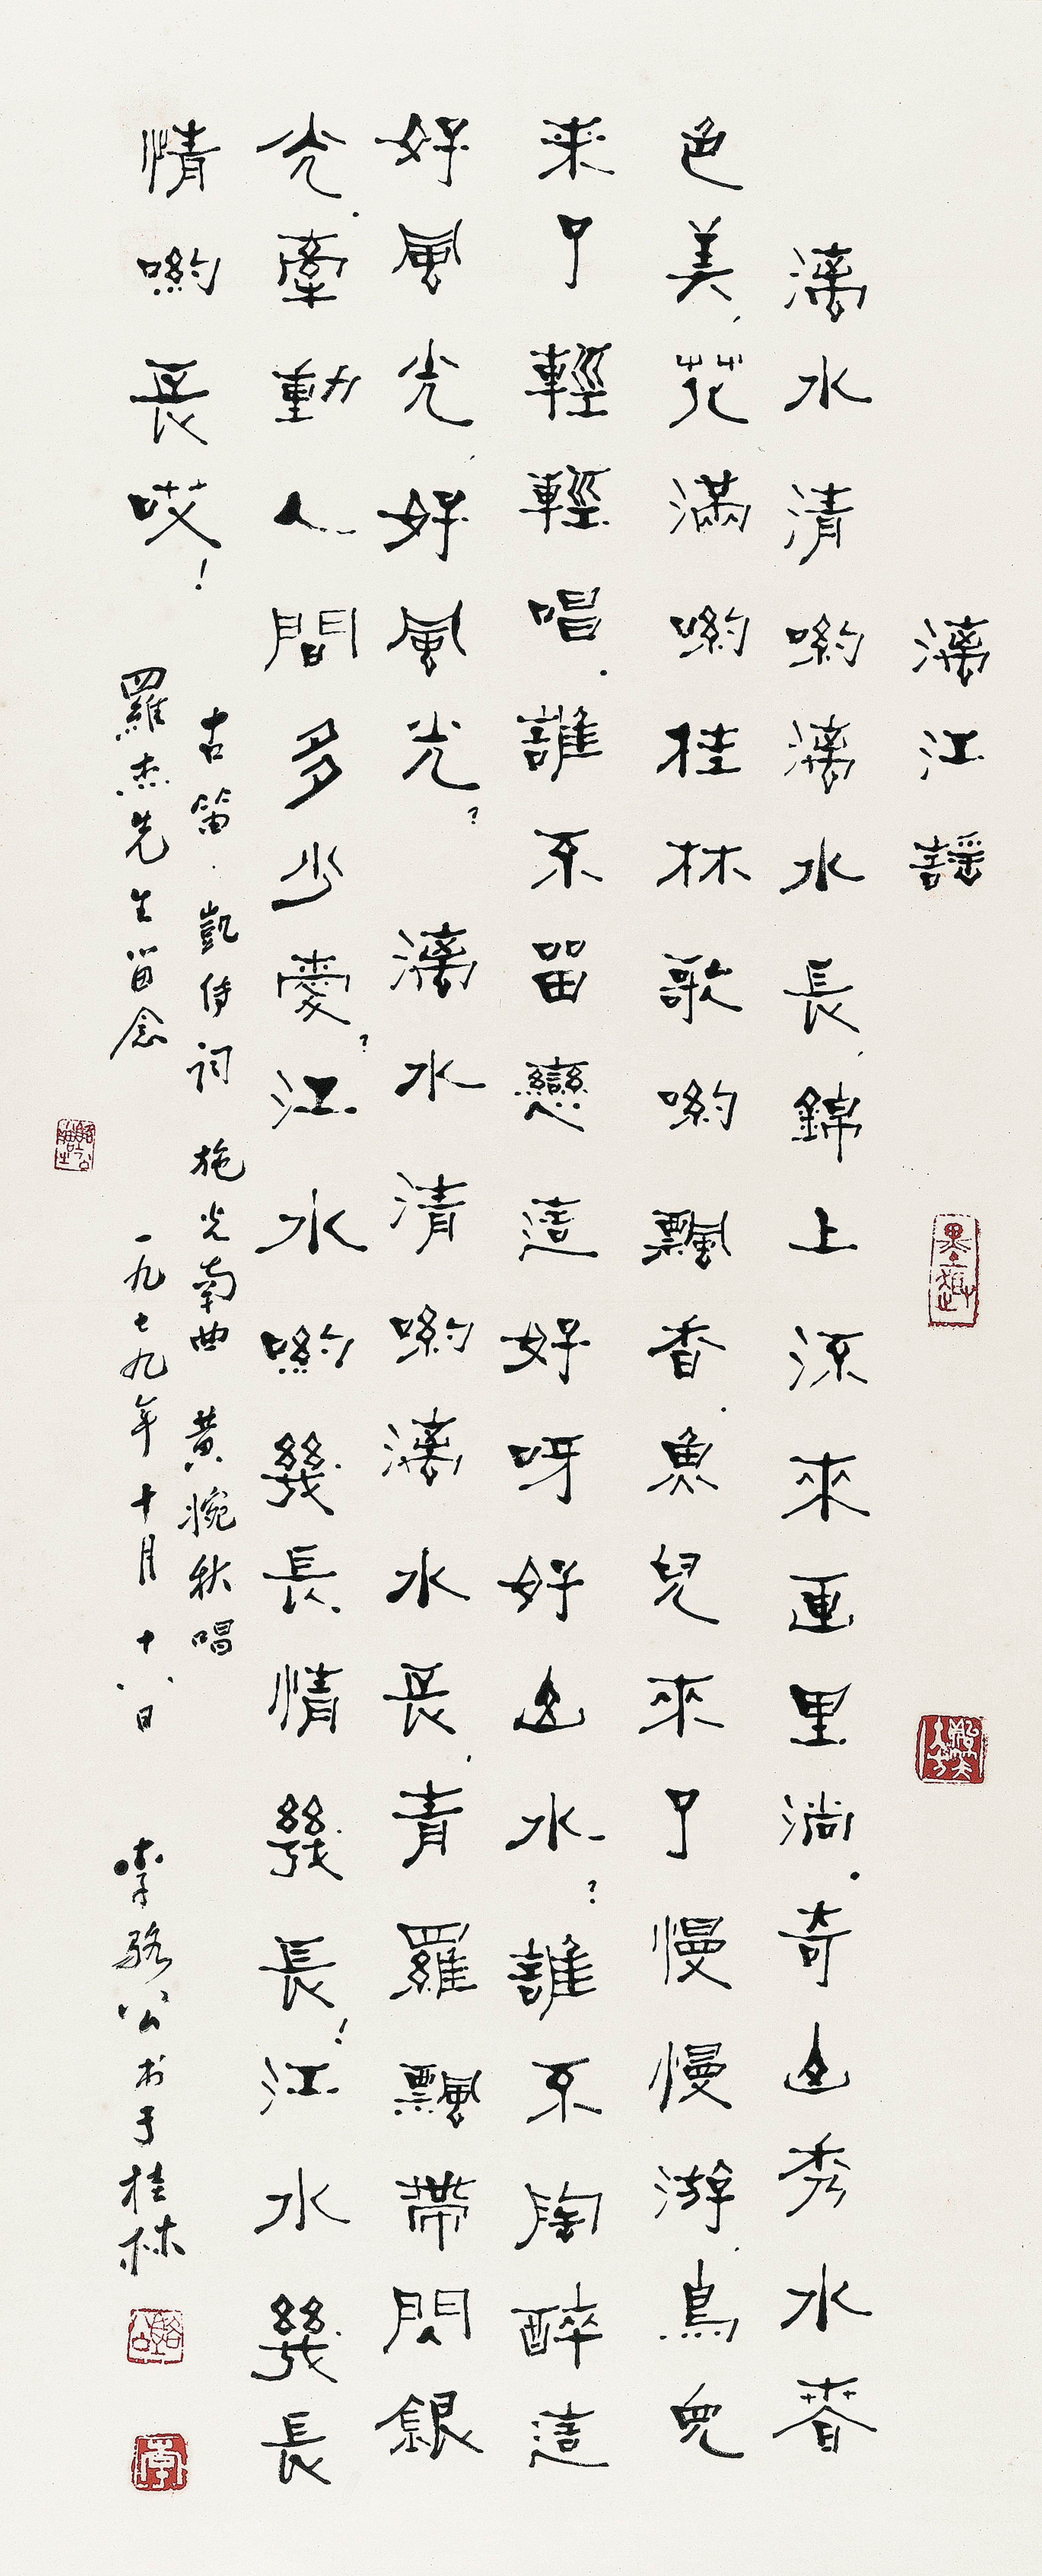 漓江謡
漓水清喲漓水長,錦上流來画里淌.奇山秀水春
色美,花滿喲桂林歌喲飄香.魚兒來了慢慢游,鳥兒
来了輕輕唱.誰不留戀這好呀好山水?誰不陶醉這
好風光,好風光?漓水清喲漓水長,青羅飄帶閃銀
光.牽動人間多少愛?江水喲幾長情幾長!江水幾長
情喲長哎!
古笛.凱傳詞 施光南曲 黄婉秋唱
羅杰先生留念 一九七九年十月十八日 李駱公书于桂林
墨趣